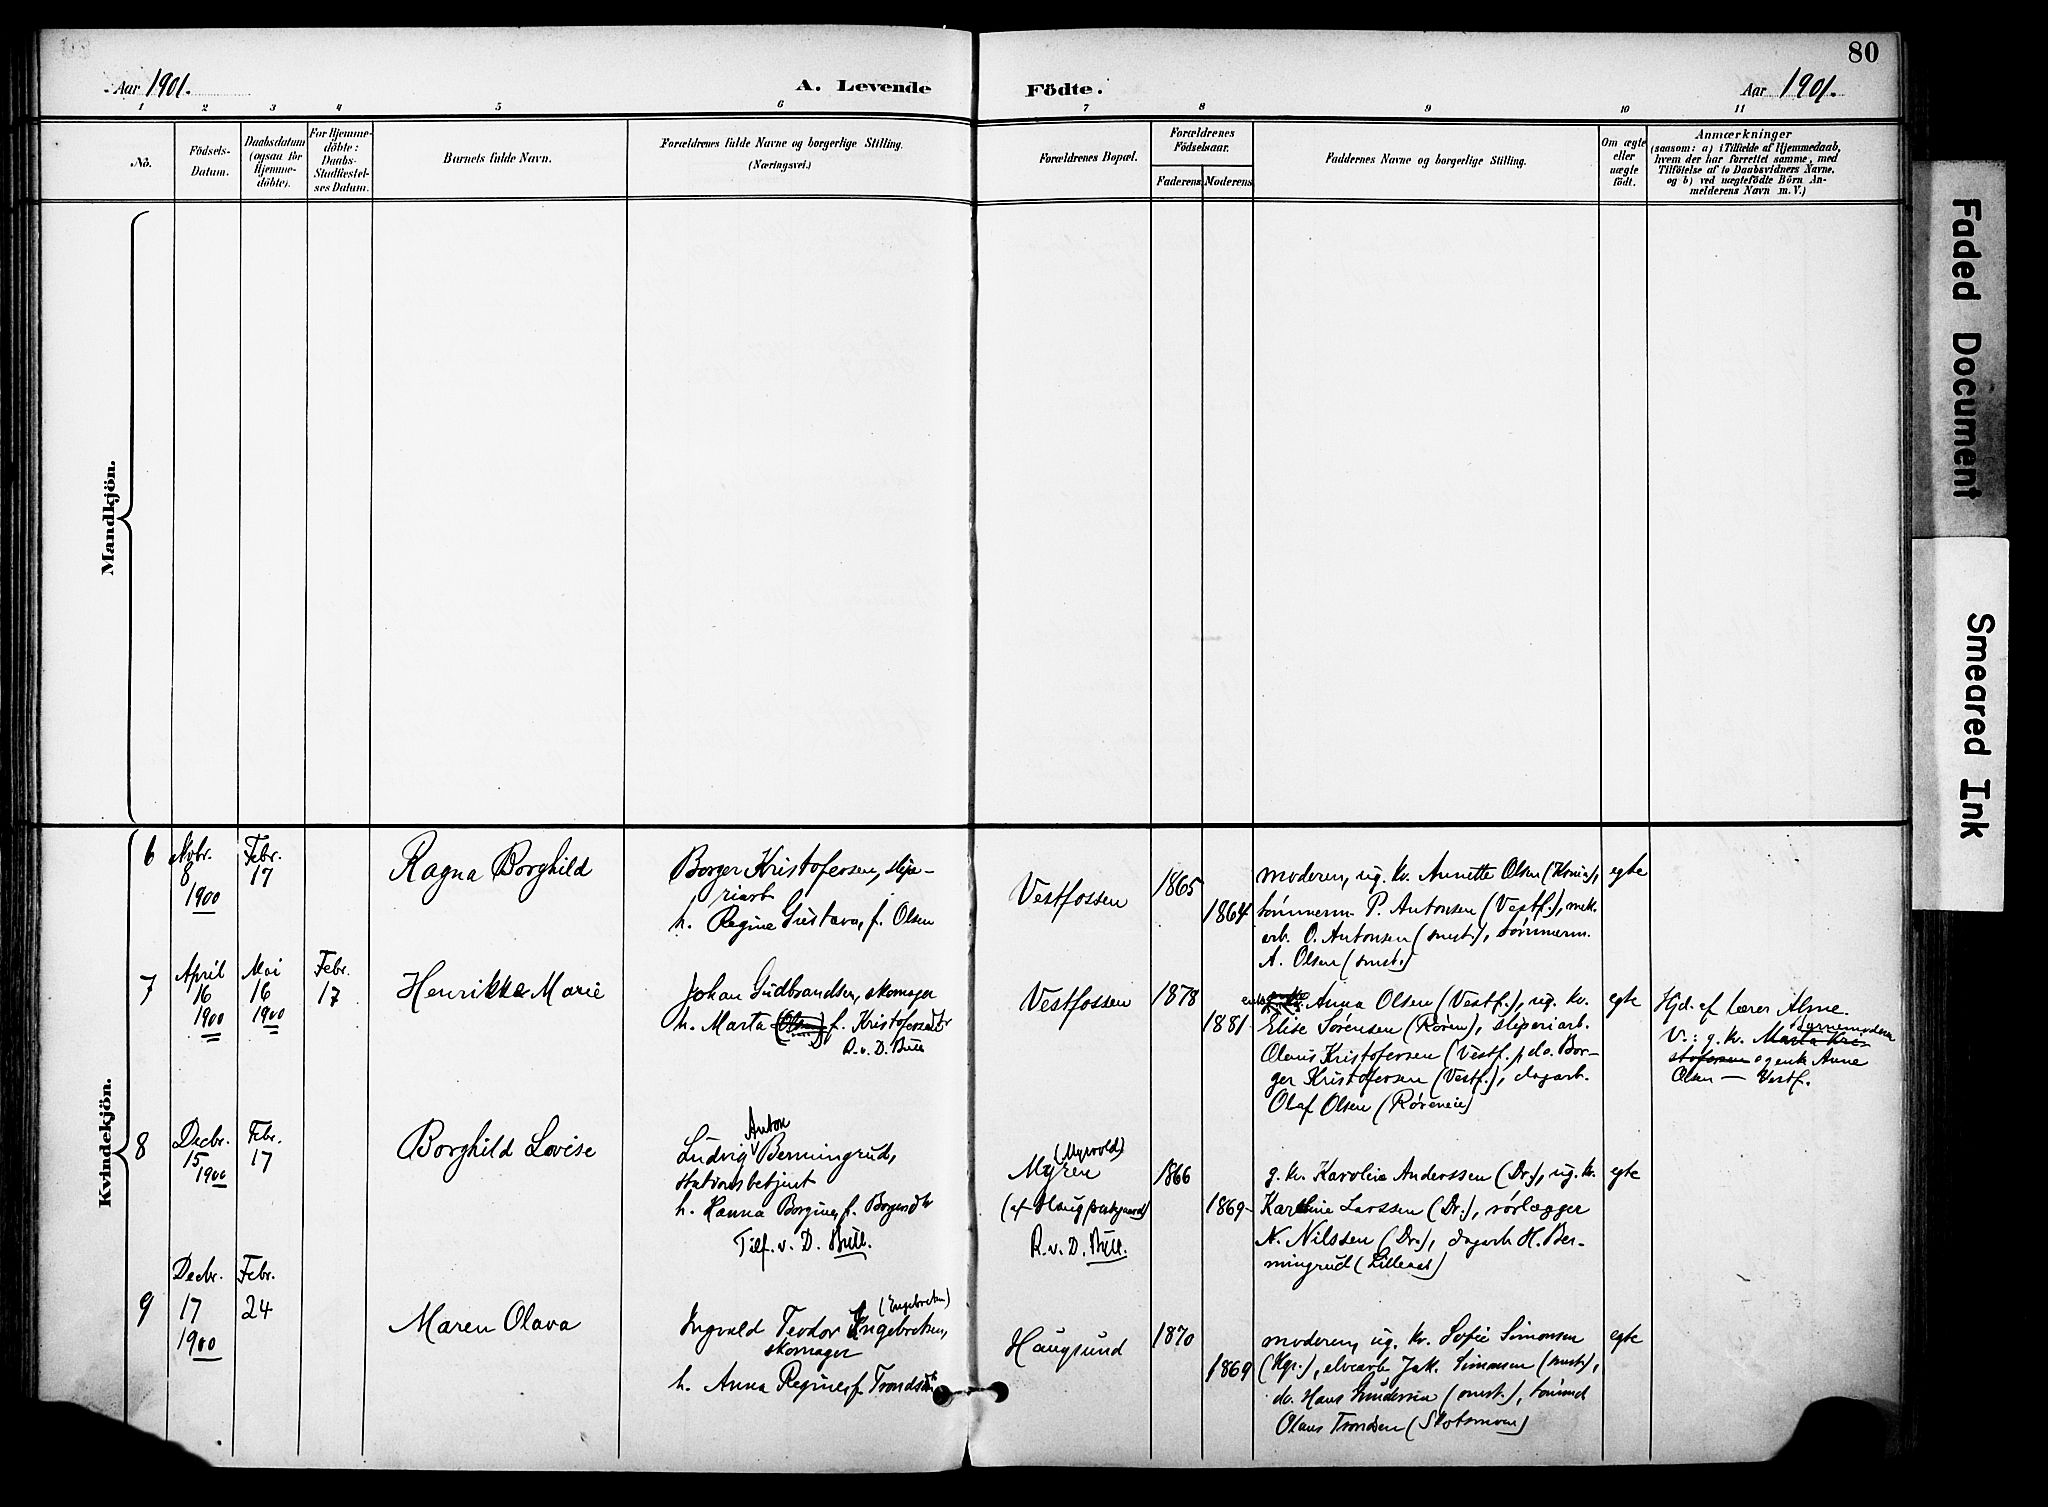 80
Aar 1901.
A. Levende Födte.
Aar 1901.
1 2 3 4 5 6 7 8 9 10 11
No.
Födsels-
Datum.
Daabsdatum
(ogsaa for
Hjemme-
döbte).
For Hjemme-
döbte:
Daabs-
Stadfæstel-
ses Datum.
Barnets fulde Navn.
Forældrenes fulde Navne og borgerlige Stilling.
(Næringsvei.)
Forældrenes Bopæl.
Forældrenes
Födselsaar.
Faderens Moderens
Faddernes Navne og borgerlige Stilling.
Om ægte
eller
uægte
født.
Anmærkninger
(saasom: a) i Tilfælde af Hjemmedaab,
hvem der har forrettet samme, med
Tilföielse af to Daabsvidners Navne,
og b) ved uægtefödte Börn An-
melderens Navn m. V.)
Mandkjön.
Kvindekjön.
6
Novbr.
8
1900
Febr.
17
Ragna Borghild
Borger Kristofersen, slipe-
riarb
h. Regine Gustava, f. Olsen
Vestfossen
1865
1864
moderen, ug. kv. Annette Olsen
tømmerm. P. Antonsen (Vestf.), mek.
arb. O. Antonsen (smst.), tømmerm.
A. Olsen (smst.)
egte
7
April
16
1900
Mai
16
1900
Febr.
17
Henrikke Marie
Johan Gudbrandsen, skomager
h. Marta (Olsen) f. Kristofersdtr
R. v. D. Bull
Vestfossen
1878
1881
enke Anna Olsen (Vestf.), ug. kv.
Elise Sørensen (Røren), sliperiarb.
Olaus Kristofersen (Vestf.), do. Bor-
ger Kristofersen (Vestf.), dagarb.
Olaf Olsen (Røreneie)
egte
Hjd. af lærer Alme.
V.: g. kv. Marta Kri-
stofersen og enke Anne
Olsen — Vestf.
8
Decbr.
15
1900
Febr.
17
Borghild Lovise
Anton
Ludvig Bermingrud,
stationsbetjent
h. Hanna Borgine, f. Borgersdtr
Tilf. v. D. Bull.
(Myrvold)
Myren
R. v. D. Bull.
1866
1869
g. kv. Karoline Anderssen (Dr.), ug. kv.
Karoline Larssen (Dr.), rørlægger
N. Nilssen (Dr.), dagarb H. Ber-
mingrud
egte
9
Decbr.
17
1900
Febr.
24
Maren Olava
(Engebretsen)
Ingvald Teodor Ingebretsen,
skomager
h. Anna Regine f. Trondsdtr
Haugsund
1870
1869
moderen, ug. kv. Sofie Simonsen
elvearb Jak. Simonsen (smst.),
do. Hans Gundersen (smst.),
Olaus Trondsen (Skotsmoen)
egte
Faded Document
Smeared Ink